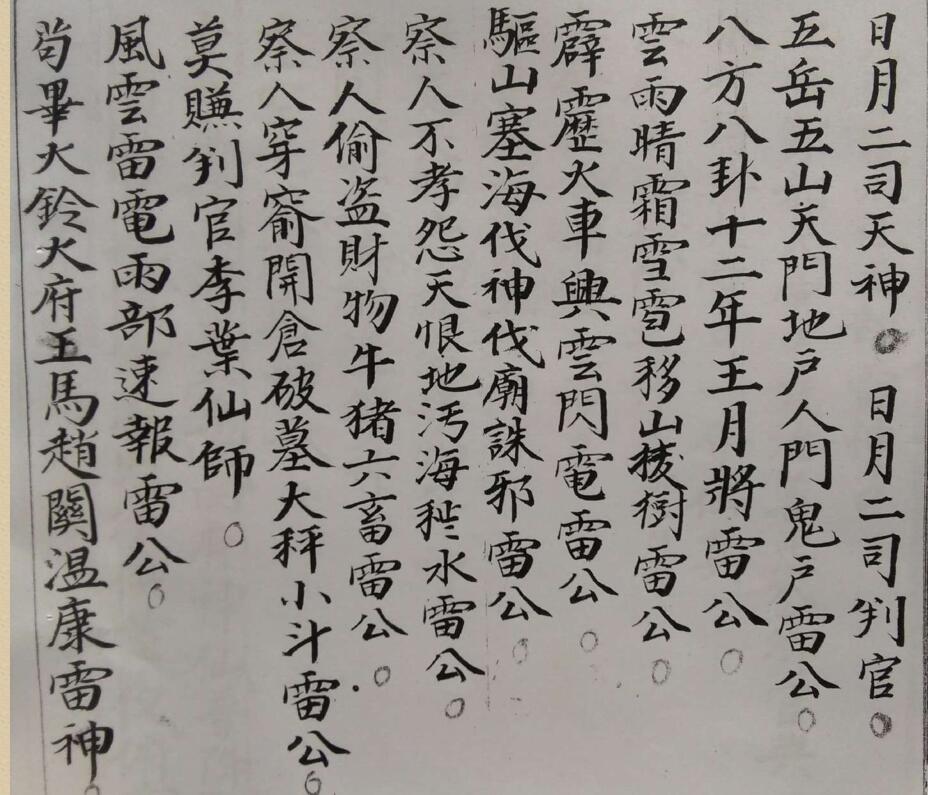 日月二司天神。日月二司判官。
五岳五山天門地户人門鬼户雷公。
八方八卦十二年王月將雷公。
雲雨晴霜雪雹移山㧞樹雷公。
霹靂火車興雲閃電雷公。
驅山塞海伐神伐廟誅邪雷公。
察人不孝怨天恨地污海水雷公。
察人偷盗財物牛猪六畜雷公。
察人穿窬開倉破墓大秤小斗雷公。
莫賺判官李葉仙師。
風雲雷電雨部速報雷公。
苟畢火鈴大府王馬趙關温康雷神。